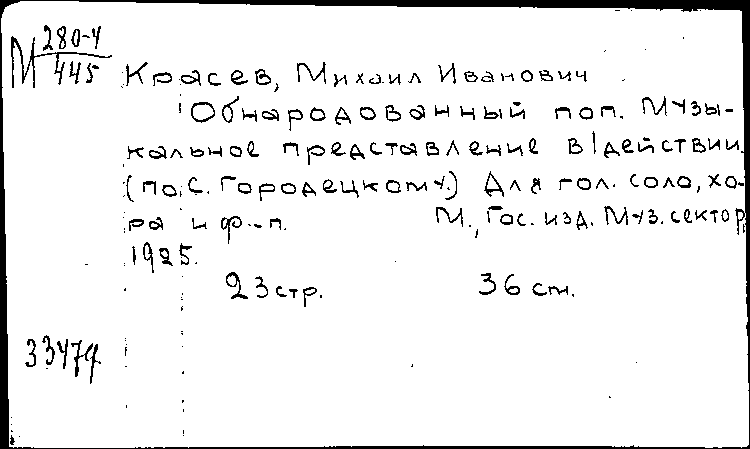 М 280-4
445
Красев, Михаил Иванович
Обнародованный поп. Музы-
кальное представление в 1 действии.
(по С. Городецкому.) Для гол. соло, хо-
ра и ф.-п. М., Гос. изд. Муз. сектор,
1925.
23 стр. 36 cm.
33474